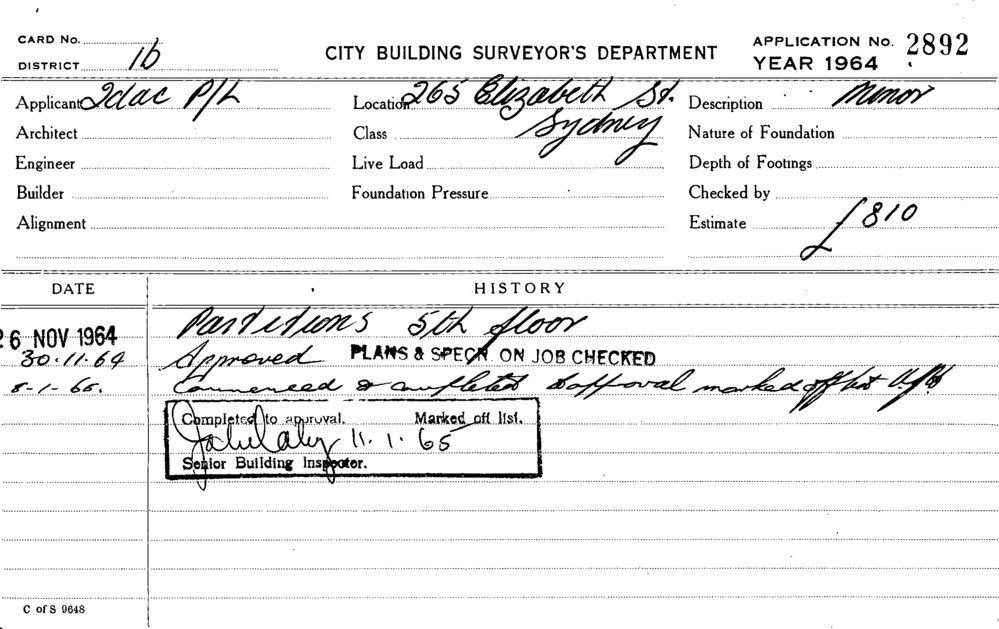 CARD No.
DISTRICT 1b
CITY BUILDING SURVEYOR'S DEPARTMENT
APPLICATION No. 2892
YEAR 1964
Applicant Idac P/L
Location 265 Elizabeth St. Sydney
Description Minor
Architect
Class
Nature of Foundation
Engineer
Live Load
Depth of Footings
Builder
Foundation Pressure
Checked by
Alignment
Estimate £810
DATE HISTORY
26 NOV 1964 Partitions 5th floor
30.11.64 Approved PLANS & SPECN. ON JOB CHECKED
8-1-65. Commenced & completed to approval marked off list
Completed to approval. Marked off list.
11.1.65
Senior Building Inspector.
C of S 9648